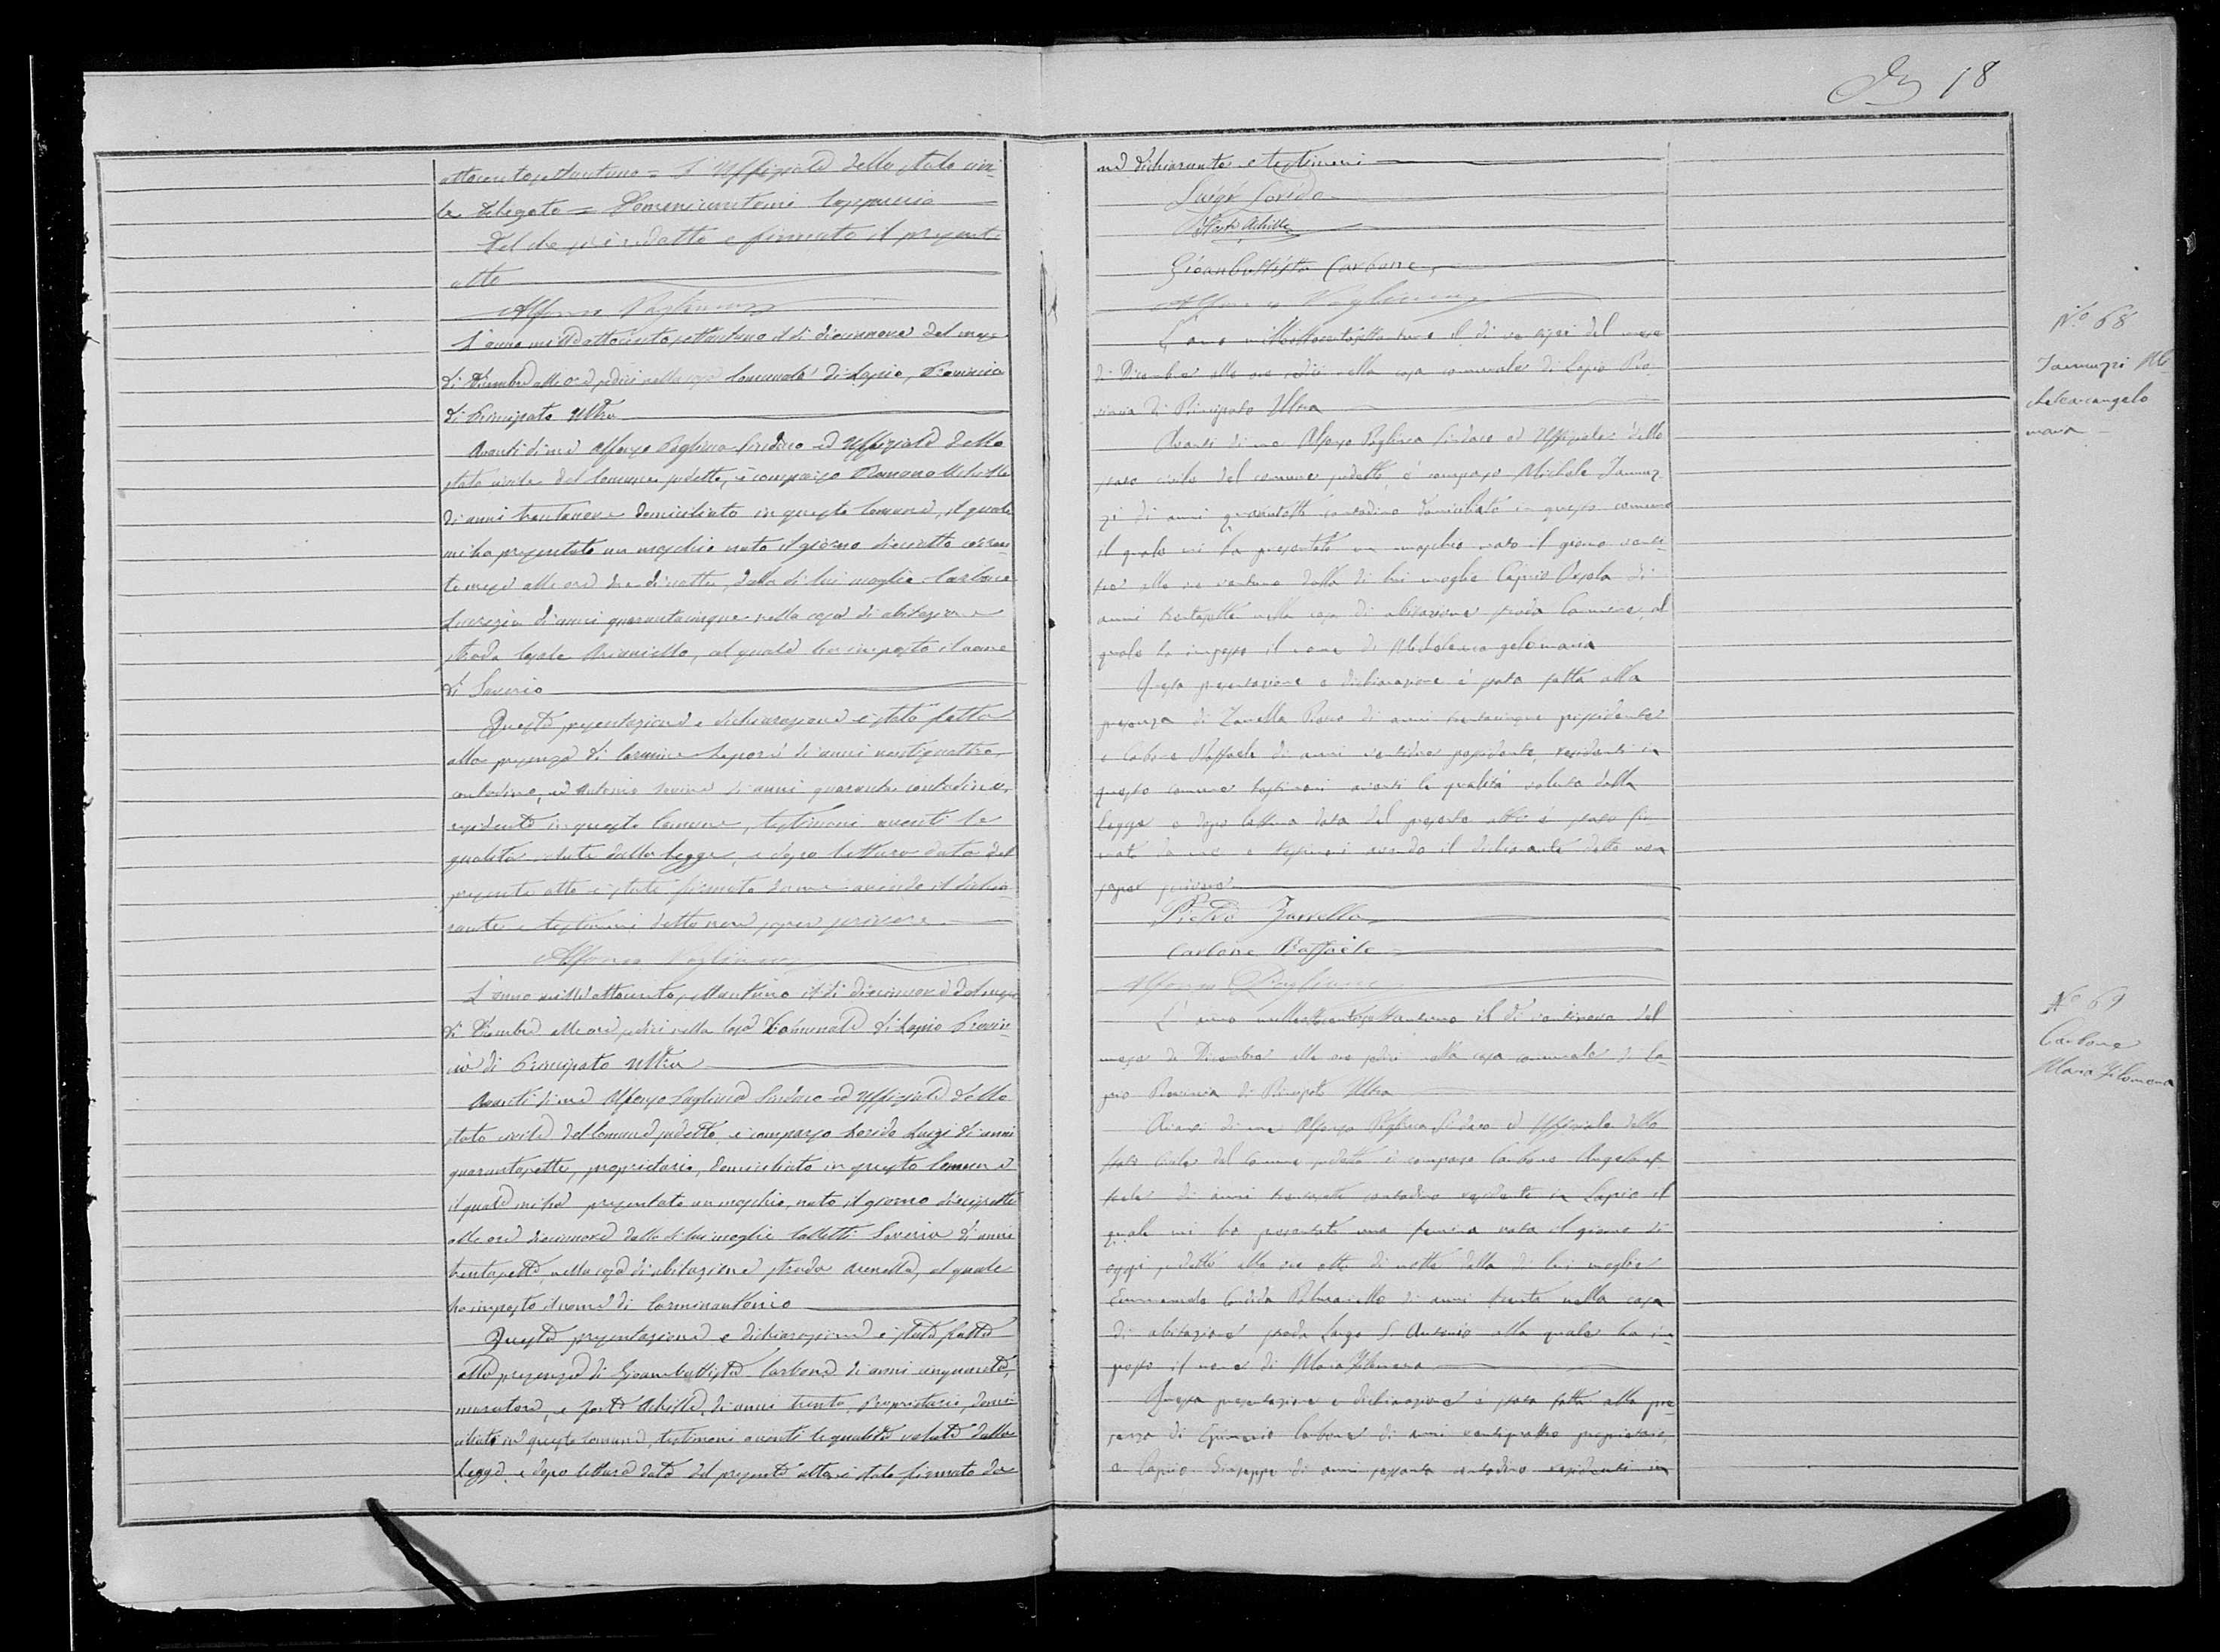 18
ottocentosettantuno = L'Uffiziale dello stato civi-
le delegato = Domenicantonio
Del che si è redatto e firmato il presente
atto
Alfonso
L'anno milleottocentosettantuno il dì diecinove del mese
di Dicembre alle ore sedici nella casa Comunale di Lapio, Provincia
di Principato Ultra
Avanti di me Alfonso Sindaco ed Uffiziale dello
stato civile del Comune sudetto, è comparso Romano Achille
di anni trentanove domiciliato in questo Comune, il quale
mi ha presentato un maschio nato il giorno dieciotto corren-
te mese alle ore due di notte, dalla di lui moglie Carbone
Lucrezia di anni quarantacinque nella casa di abitazione
strada Casale Arianiello, al quale ha imposto il nome
di Saverio
Questa presentazione e dichiarazione è stata fatta
alla presenza di Carmine Lepore di anni ventiquattro
contadino, ed Antonio di anni quaranta contadino,
residenti in questo Comune, testimoni aventi le
qualità volute dalla legge, e dopo lettura data del
presente atto è stato firmato da me avendo il dichia-
rante e testimoni detto non saper scrivere
Alfonso
L'anno mille ottocento settantuno il dì diecinove del mese
di Dicembre alle ore sedici nella casa Comunale di Lapio Provin-
cia di Principato Ultra
Avanti di me Alfonso Sindaco ed Uffiziale dello
stato civile del Comune sudetto, è comparso Forido Luigi di anni
quarantasette, proprietario, domiciliato in questo Comune
il quale mi ha presentato un maschio, nato il giorno diecissette
alle ore diecinove dalla di lui moglie Colletti Saveria di anni
trentasette, nella casa di abitazione strada Arenella, al quale
ha imposto il nome di Carminantonio
Questa presentazione e dichiarazione è stata fatta
alla presenza di Giambattista Carbone di anni cinquanta,
muratore, e Achille, di anni trenta, Proprietario, domi-
ciliati in questo Comune, testimoni aventi le qualità volute dalla
legge, e dopo lettura data del presente atto è stato firmato da
me dichiarante e testimoni
Luigi Forido
Achille
Gioanbattista Carbone
Alfonso
N.º 68
Iannuzzi Mi-
chelearcangelo
maria
L'anno milleottocentosettantuno il dì ventisei del mese
di Dicembre alle ore sedici nella casa comunale di Lapio Pro-
vincia di Principato Ultra
Avanti di me Alfonso Sindaco ed Uffiziale dello
stato civile del comune sudetto, è comparso Michele Iannuz-
zi di anni quarantotto contadino domiciliato in questo comune
il quale mi ha presentato un maschio nato il giorno venti-
tre alle ore ventuno dalla di lui moglie Caprio Orsola di
anni trentasette nella casa di abitazione strada Carmine, al
quale ha imposto il nome di Michelearcangelomaria
Questa presentazione e dichiarazione è stata fatta alla
presenza di Zarrella Pietro di anni trentacinque possidente
e Carbone Raffaele di anni ventidue possidente, residenti in
questo comune testimoni aventi le qualità volute dalla
legge e dopo lettura data del presente atto è stato fir-
mato da me e testimoni avendo il dichiarante detto non
saper scrivere
Pietro Zarrella
Carbone Raffaele
Alfonso
N.º 69
Carbone
Maria Filomena
L'anno milleottocentosettantuno il dì ventinove del
mese di Dicembre alle ore sedici nella casa comunale di La-
pio Provincia di Principato Ultra
Avanti di me Alfonso Sindaco ed Uffiziale dello
stato civile del Comune sudetto è comparso Carbone
di anni trentasette contadino residente in Lapio il
quale mi ha presentato una femina nata il giorno di
oggi sudetto alle ore otto di notte dalla di lui moglie
Candida di anni trenta nella casa
di abitazione strada Largo S. Antonio alla quale ha im-
posto il nome di Maria Filomena
Questa presentazione e dichiarazione è stata fatta alla pre-
senza di Carbone di anni ventiquattro proprietario,
e Caprio Giuseppe di anni sessanta contadino residenti in